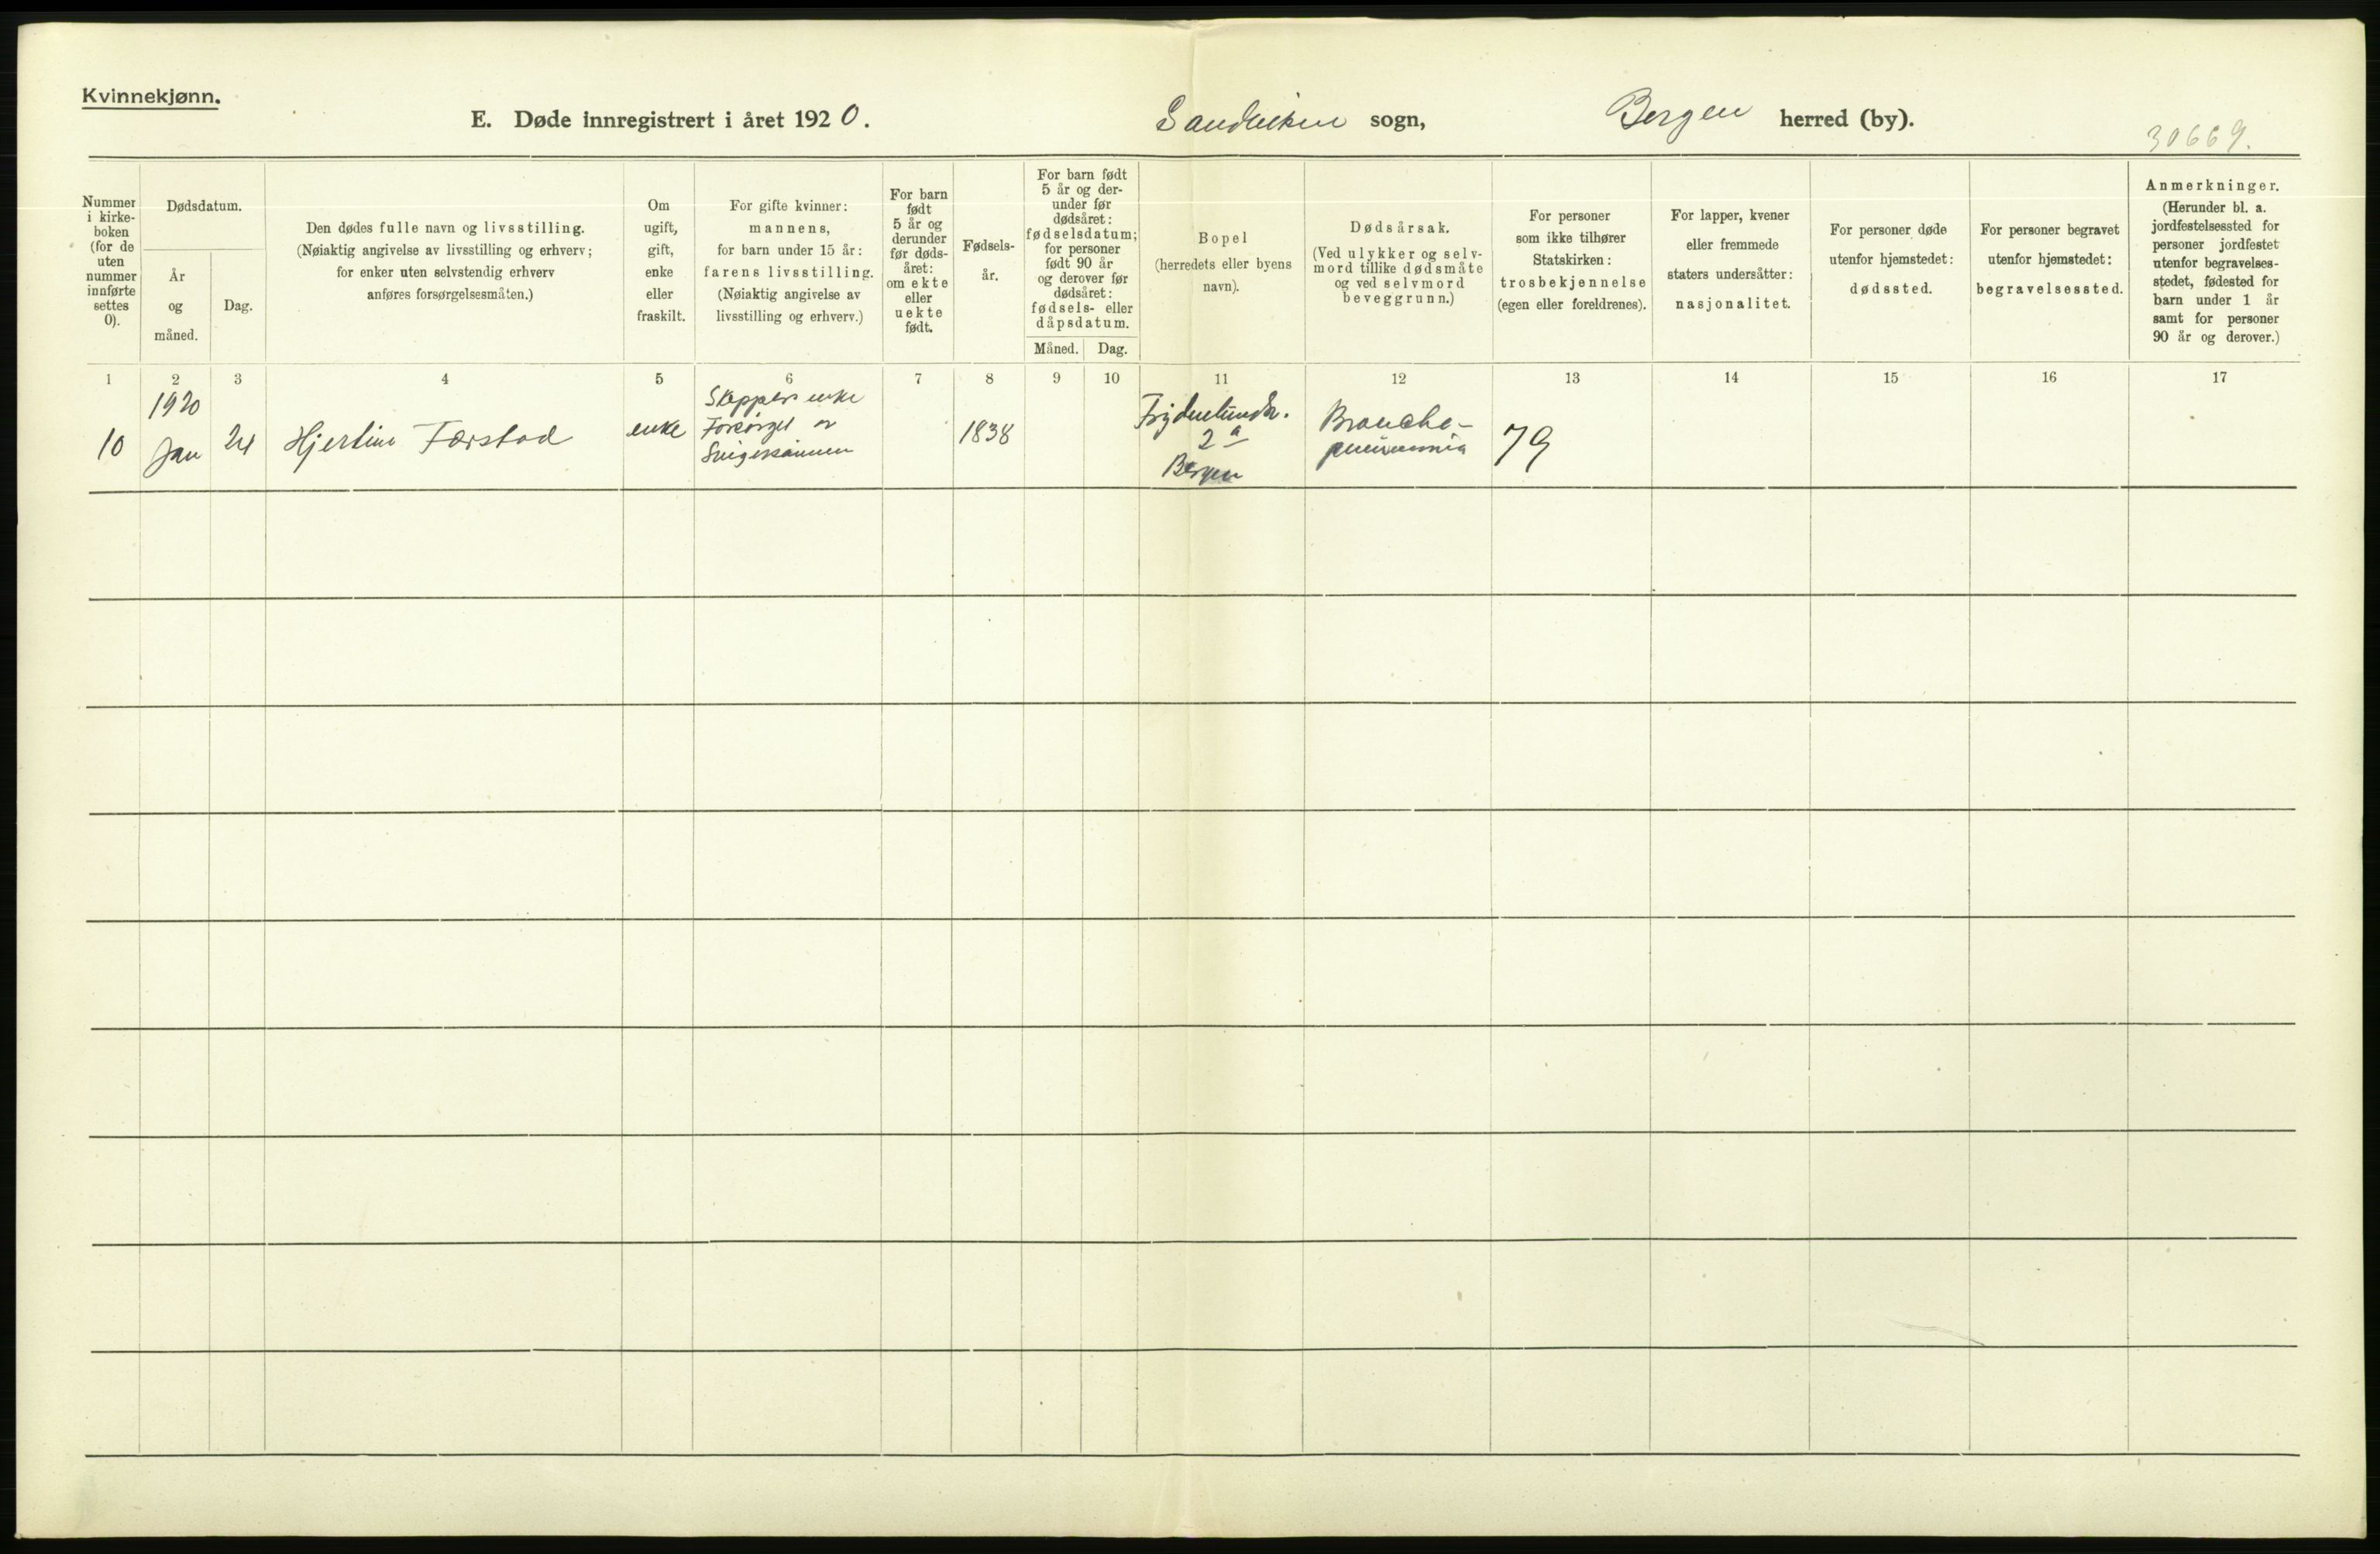 Kvinnekjønn.
E. Døde innregistrert i året 1920.
Sandviken sogn,
Bergen herred (by).
30669.
Nummer
i kirke-
boken
(for de
uten
nummer
innførte
settes
0).
Dødsdatum.
År
og
måned.
Dag.
Den dødes fulle navn og livsstilling.
(Nøiaktig angivelse av livsstilling og erhverv;
for enker uten selvstendig erhverv
anføres forsørgelsesmåten.)
Om
ugift,
gift,
enke
eller
fraskilt.
For gifte kvinner:
mannens,
for barn under 15 år:
farens livsstilling.
(Nøiaktig angivelse av
livsstilling og erhverv.)
For barn
født
5 år og
derunder
før døds-
året:
om ekte
eller
uekte
født.
Fødsels-
år.
For barn født
5 år og der-
under før
dødsåret:
fødselsdatum;
for personer
født 90 år
og derover før
dødsåret:
fødsels- eller
dåpsdatum.
Måned.
Dag.
Bopel
(herredets eller byens
navn).
Dødsårsak.
(Ved ulykker og selv-
mord tillike dødsmåte
og ved selvmord
beveggrunn.)
For personer
som ikke tilhører
Statskirken:
trosbekjennelse
(egen eller foreldrenes).
For lapper, kvener
eller fremmede
staters undersåtter:
nasjonalitet.
For personer døde
utenfor hjemstedet:
dødssted.
For personer begravet
utenfor hjemstedet:
begravelsessted.
Anmerkninger.
(Herunder bl. a.
jordfestelsessted for
personer jordfestet
utenfor begravelses-
stedet, fødested for
barn under 1 år
samt for personer
90 år og derover.)
1 2 3 4 5 6 7 8 9 10 11 12 13 14 15 16 17
10
1920
Jan
24
Hjertine Færstad
enke
Skippers enke
Forsørget av
Svigersønnen
1838
2a
Bergen
Broncho-
pneumonia
79